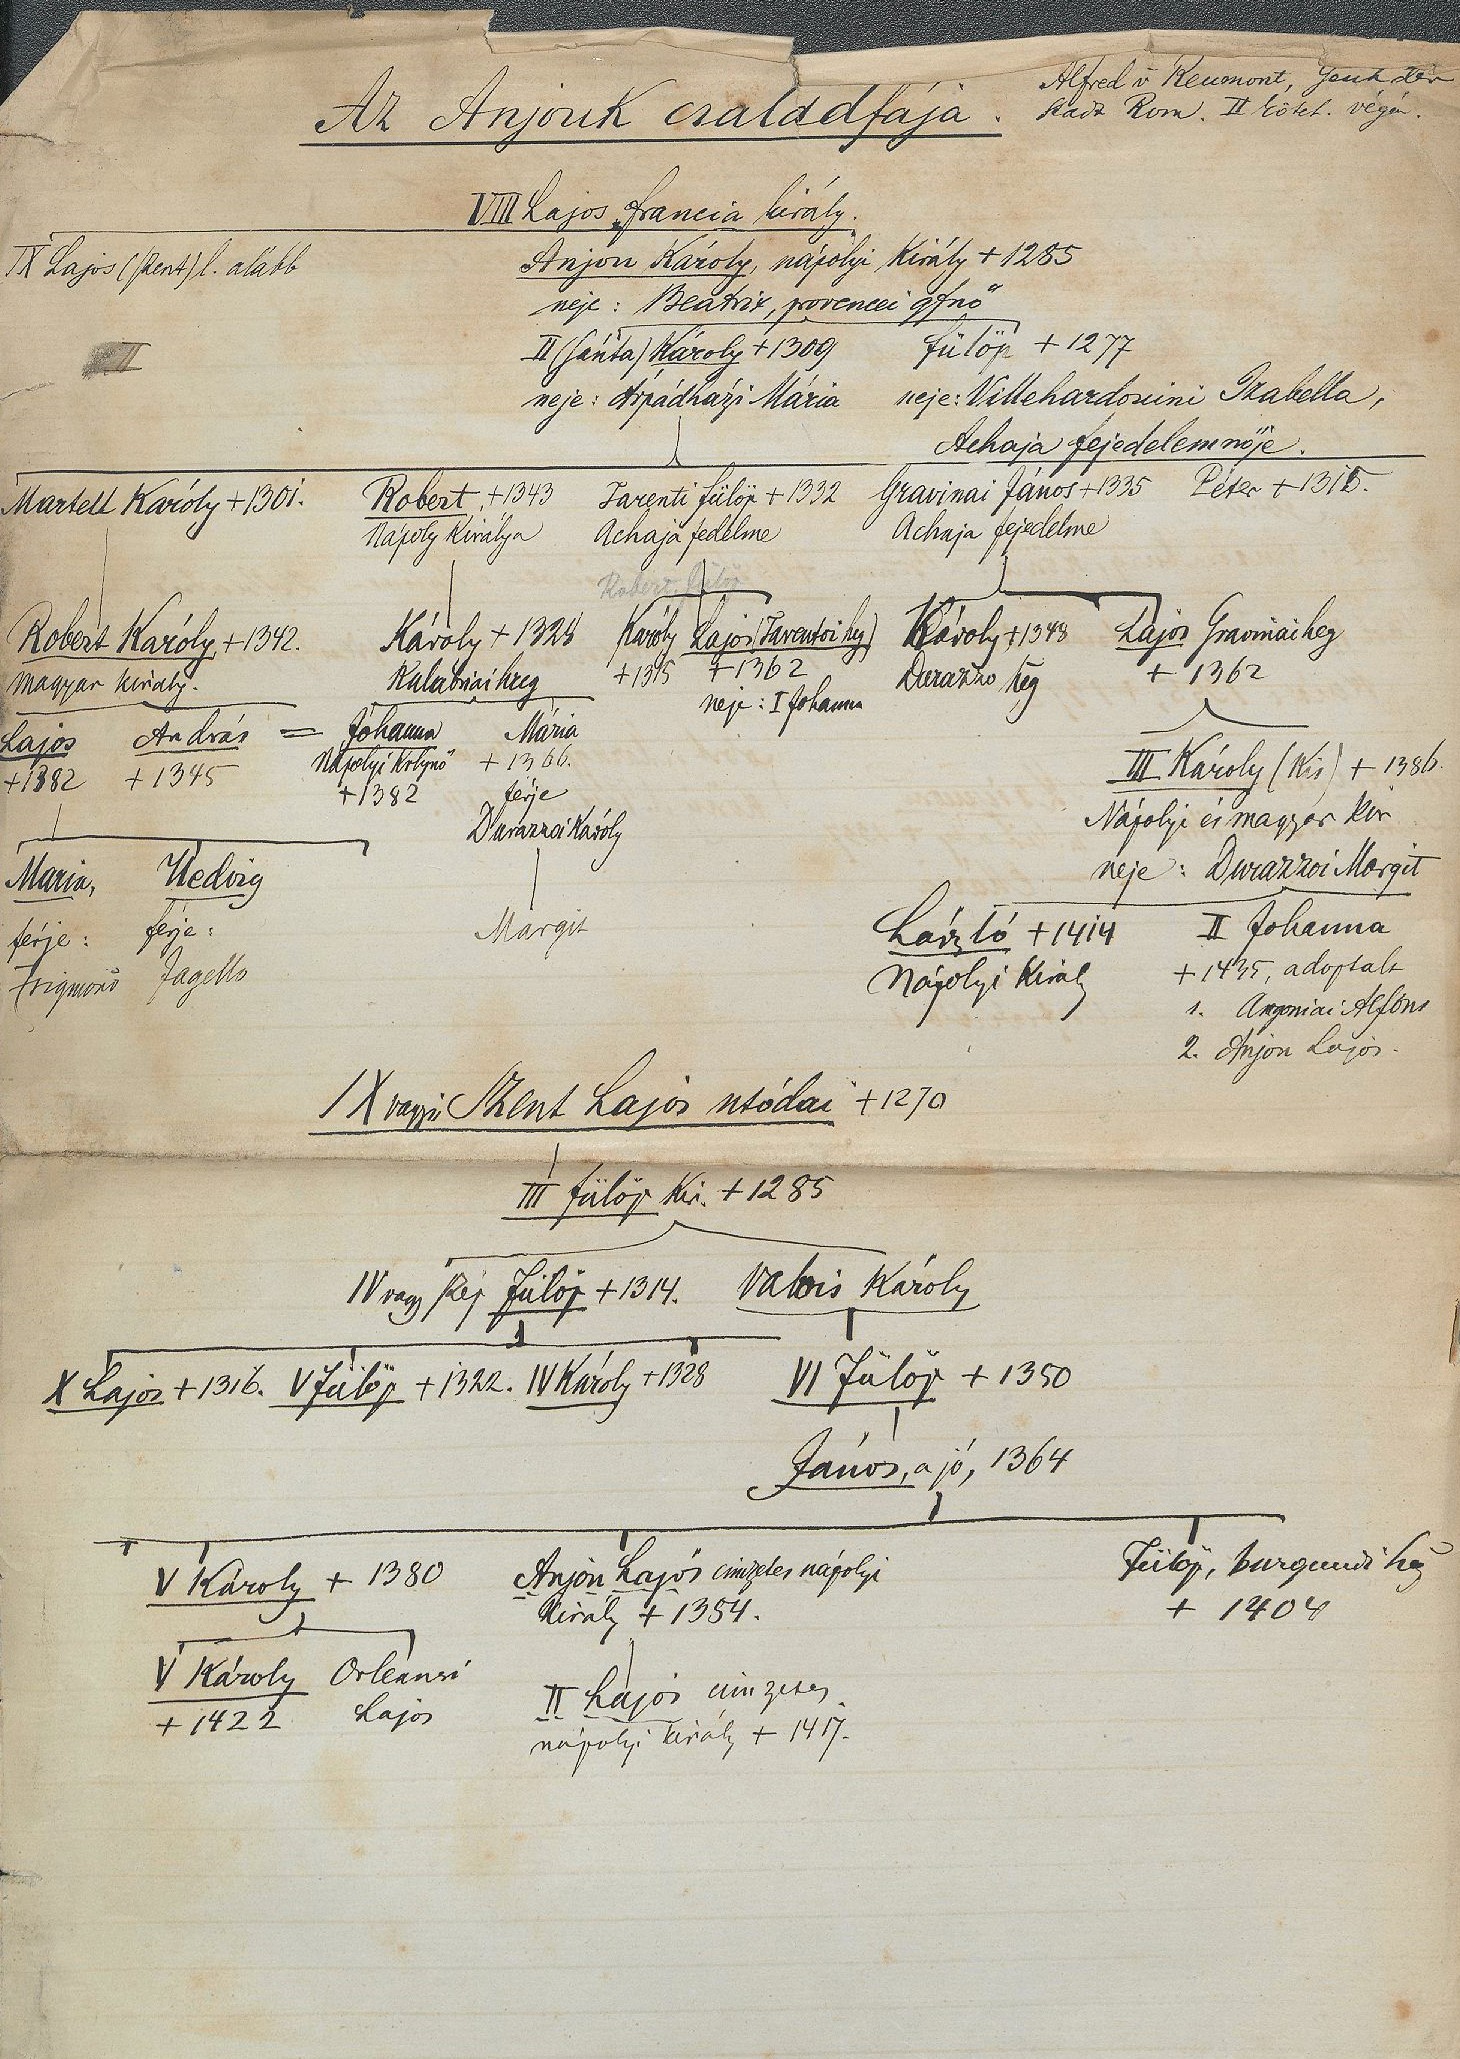 Az Anjouk családfája.
Alfred v Reumont, Gesch der
Stadt Rom. II kötet. végén.
VIII Lajos francia király.
IX Lajos (szent) l. alább
Anjou Károly, nápolyi Király + 1285
neje: Beatrix, provencei gfnő
II (Sánta) Károly + 1309
Fülöp + 1277
neje: Árpádházi Mária
neje: Villehardouini Izabella,
Achaja fejedelemnője.
II
Martell Károly + 1301.
Robert, + 1343
Tarenti Fülöp + 1332
Gravinai János + 1335
Péter + 1315.
Nápoly Királya
Achaja fedelme
Achaja fejedelme
Robert, Fülöp
Robert Károly + 1342.
Károly + 1328
Károly
Lajos (Tarentoi heg)
Károly + 1348
Lajos Gravinai heg
magyar király.
Kalabriai hreg
+ 1315
+ 1362
Durazzo heg
+ 1362
neje: I Johanna
Lajos
András
=
Johanna
Mária
+ 1382
+ 1345
Nápolyi Krlynő
+ 1366.
+ 1382
férje
Durazzoi Karóly
III Károly (Kis) + 1386.
Nápolyi és magyar kir
neje: Durazzoi Margit
Maria,
Hedvig
férje:
férje:
Zsigmond
Jagello
Margit
László + 1414
II Johanna
Nápolyi Király
+ 1435, adoptált
1. Aragoniai Alfons
2. Anjou Lajos.
IX vagyis Szent Lajos utódai + 1270
III Fülöp Kir. + 1285
IV vagy szép Fülöp + 1314.
Valois Károly
X Lajos + 1316.
V Fülöp + 1322.
IV Károly + 1328
VI Fülöp + 1350
János, a jó, 1364
V Károly + 1380
Anjou Lajos cimzetes nápolyi
Király + 1384.
Fülöp, burgundi hg
+ 1404
V Károly
Orleansi
+ 1422
Lajos
II Lajos cimzetes
nápolyi király + 1417.